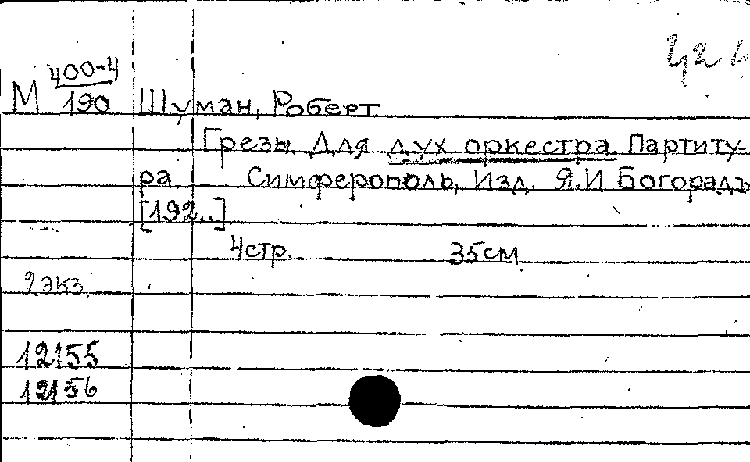 М 400-4
190 Шуман, Роберт
Грезы. Для дух оркестра. Партиту-
ра. Симферополь, Изд. Я.И Богорадъ
[192..]
4стр. 35см
2экз.
12155
12156